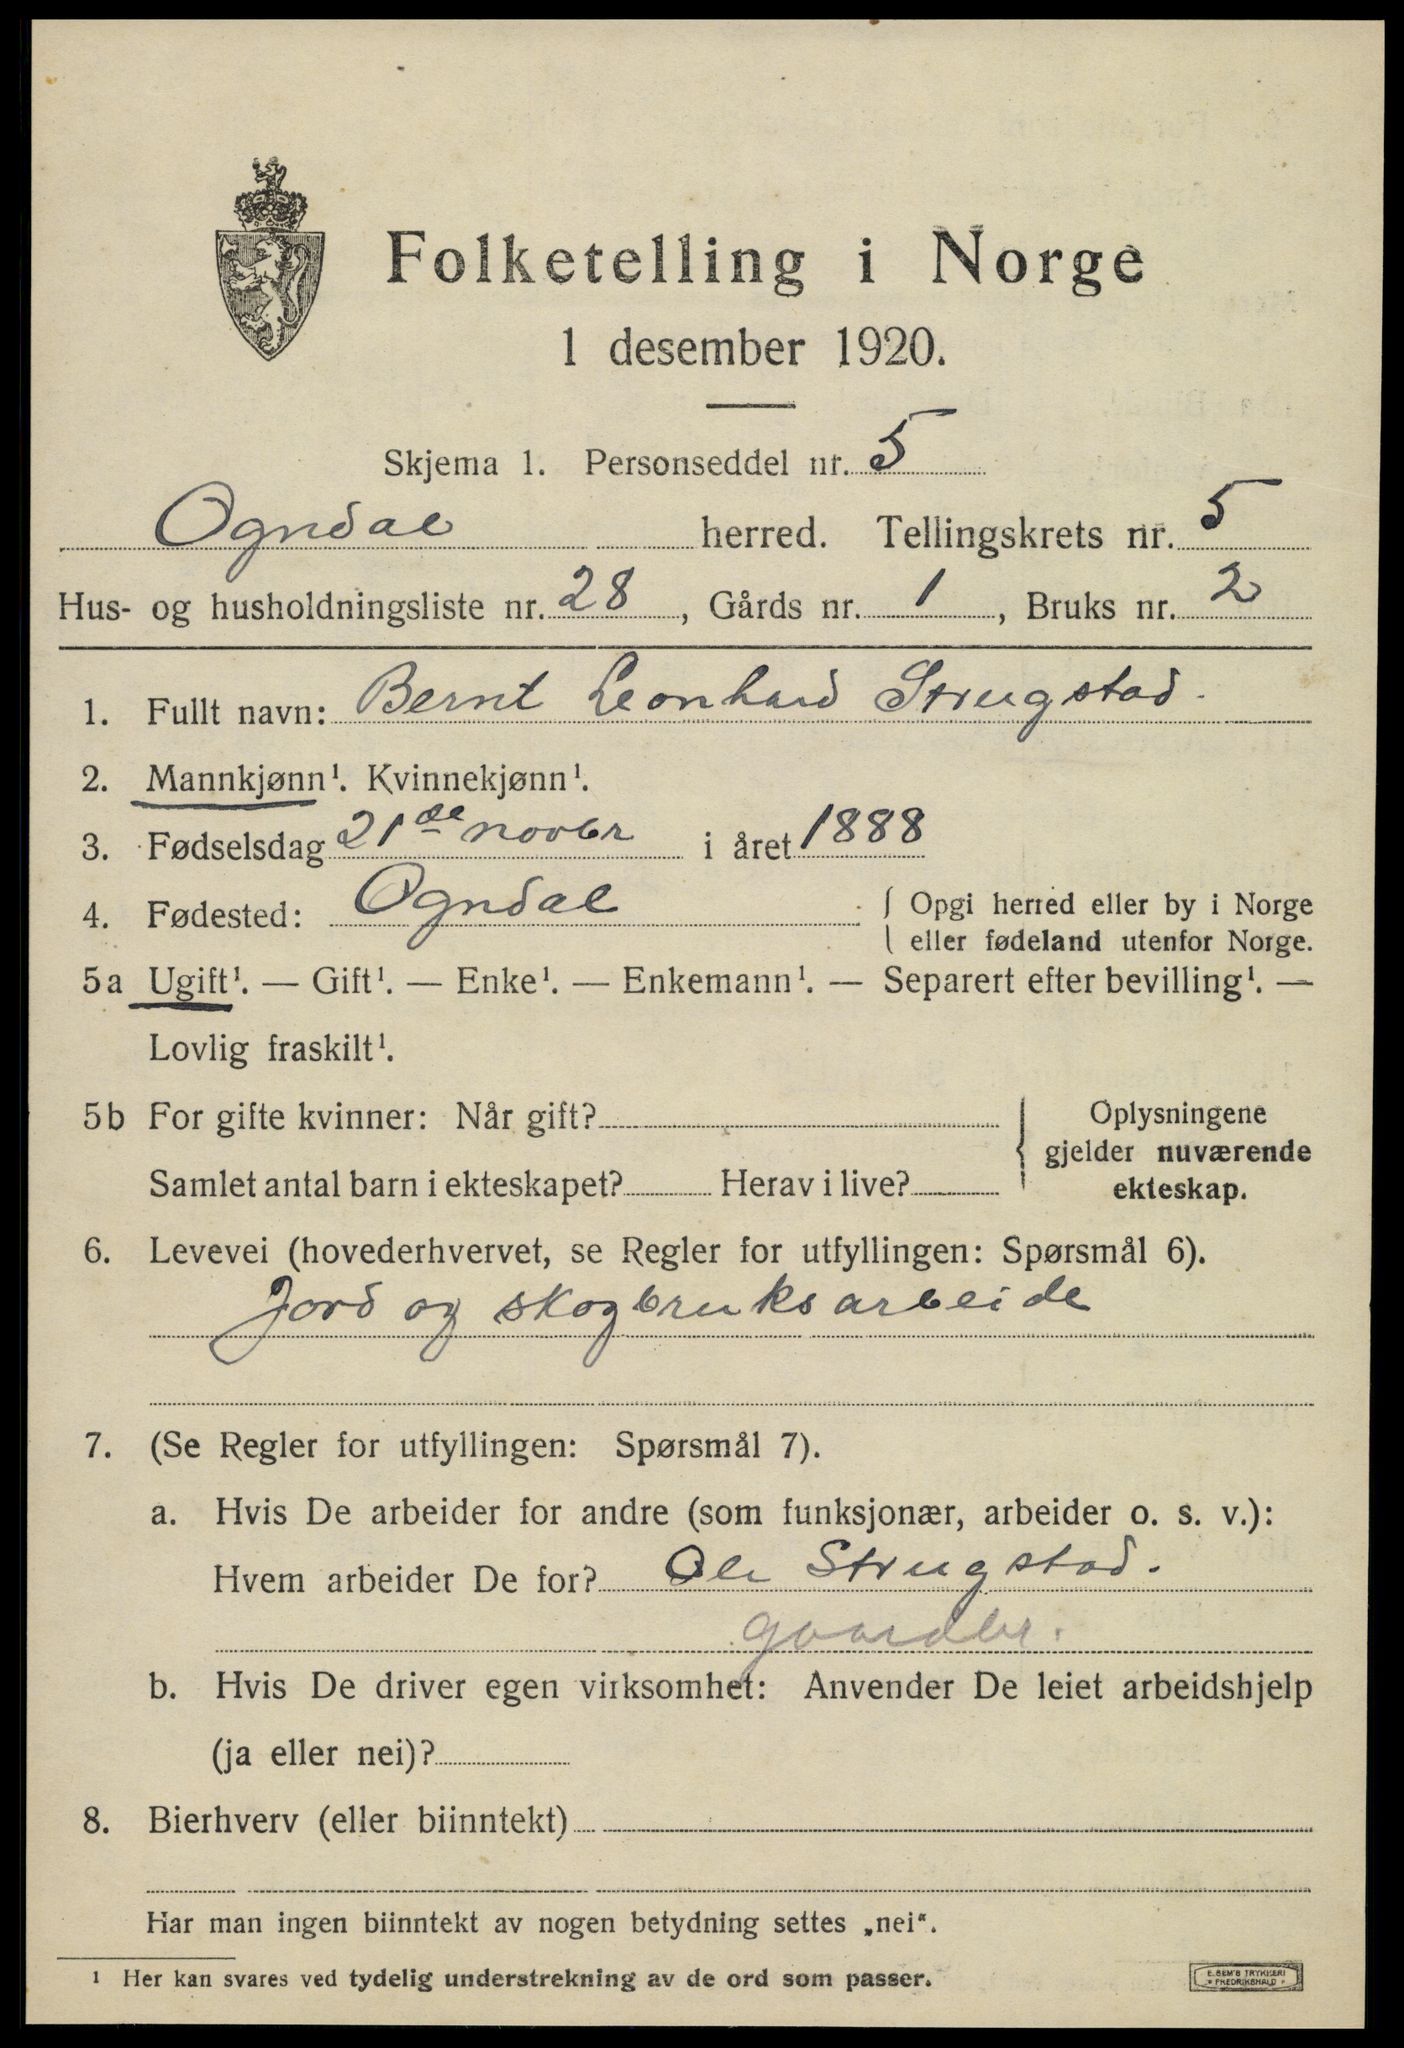 Folketelling i Norge
1 desember 1920.
Skjema 1. Personseddel nr. 5
Ogndal herred. Tellingskrets nr. 5
Hus- og husholdningsliste nr. 28, Gårds nr. 1, Bruks nr. 2
1. Fullt navn: Bernt Leonhard Strugstad.
2. Mannkjønn¹. Kvinnekjønn¹.
3. Fødselsdag 21de novbr i året 1888
4. Fødested: Ogndal { Opgi herred eller by i Norge
eller fødeland utenfor Norge.
5a Ugift¹. — Gift¹. — Enke¹. — Enkemann¹. — Separert efter bevilling¹. —
Lovlig fraskilt¹.
5b For gifte kvinner: Når gift? { Oplysningene
gjelder nuværende
Samlet antal barn i ekteskapet? Herav i live? ekteskap.
6. Levevei (hovederhvervet, se Regler for utfyllingen: Spørsmål 6).
Jord og skogbruksarbeide
7. (Se Regler for utfyllingen: Spørsmål 7).
a. Hvis De arbeider for andre (som funksjonær, arbeider o. s. v.):
Hvem arbeider De for? Ole Strugstad.
gaardbr.
b. Hvis De driver egen virksomhet: Anvender De leiet arbeidshjelp
(ja eller nei)?
8. Bierhverv (eller biinntekt)
Har man ingen biinntekt av nogen betydning settes „nei“.
¹ Her kan svares ved tydelig understrekning av de ord som passer.
E. SEM'S TRYKKERI
FREDRIKSHALD